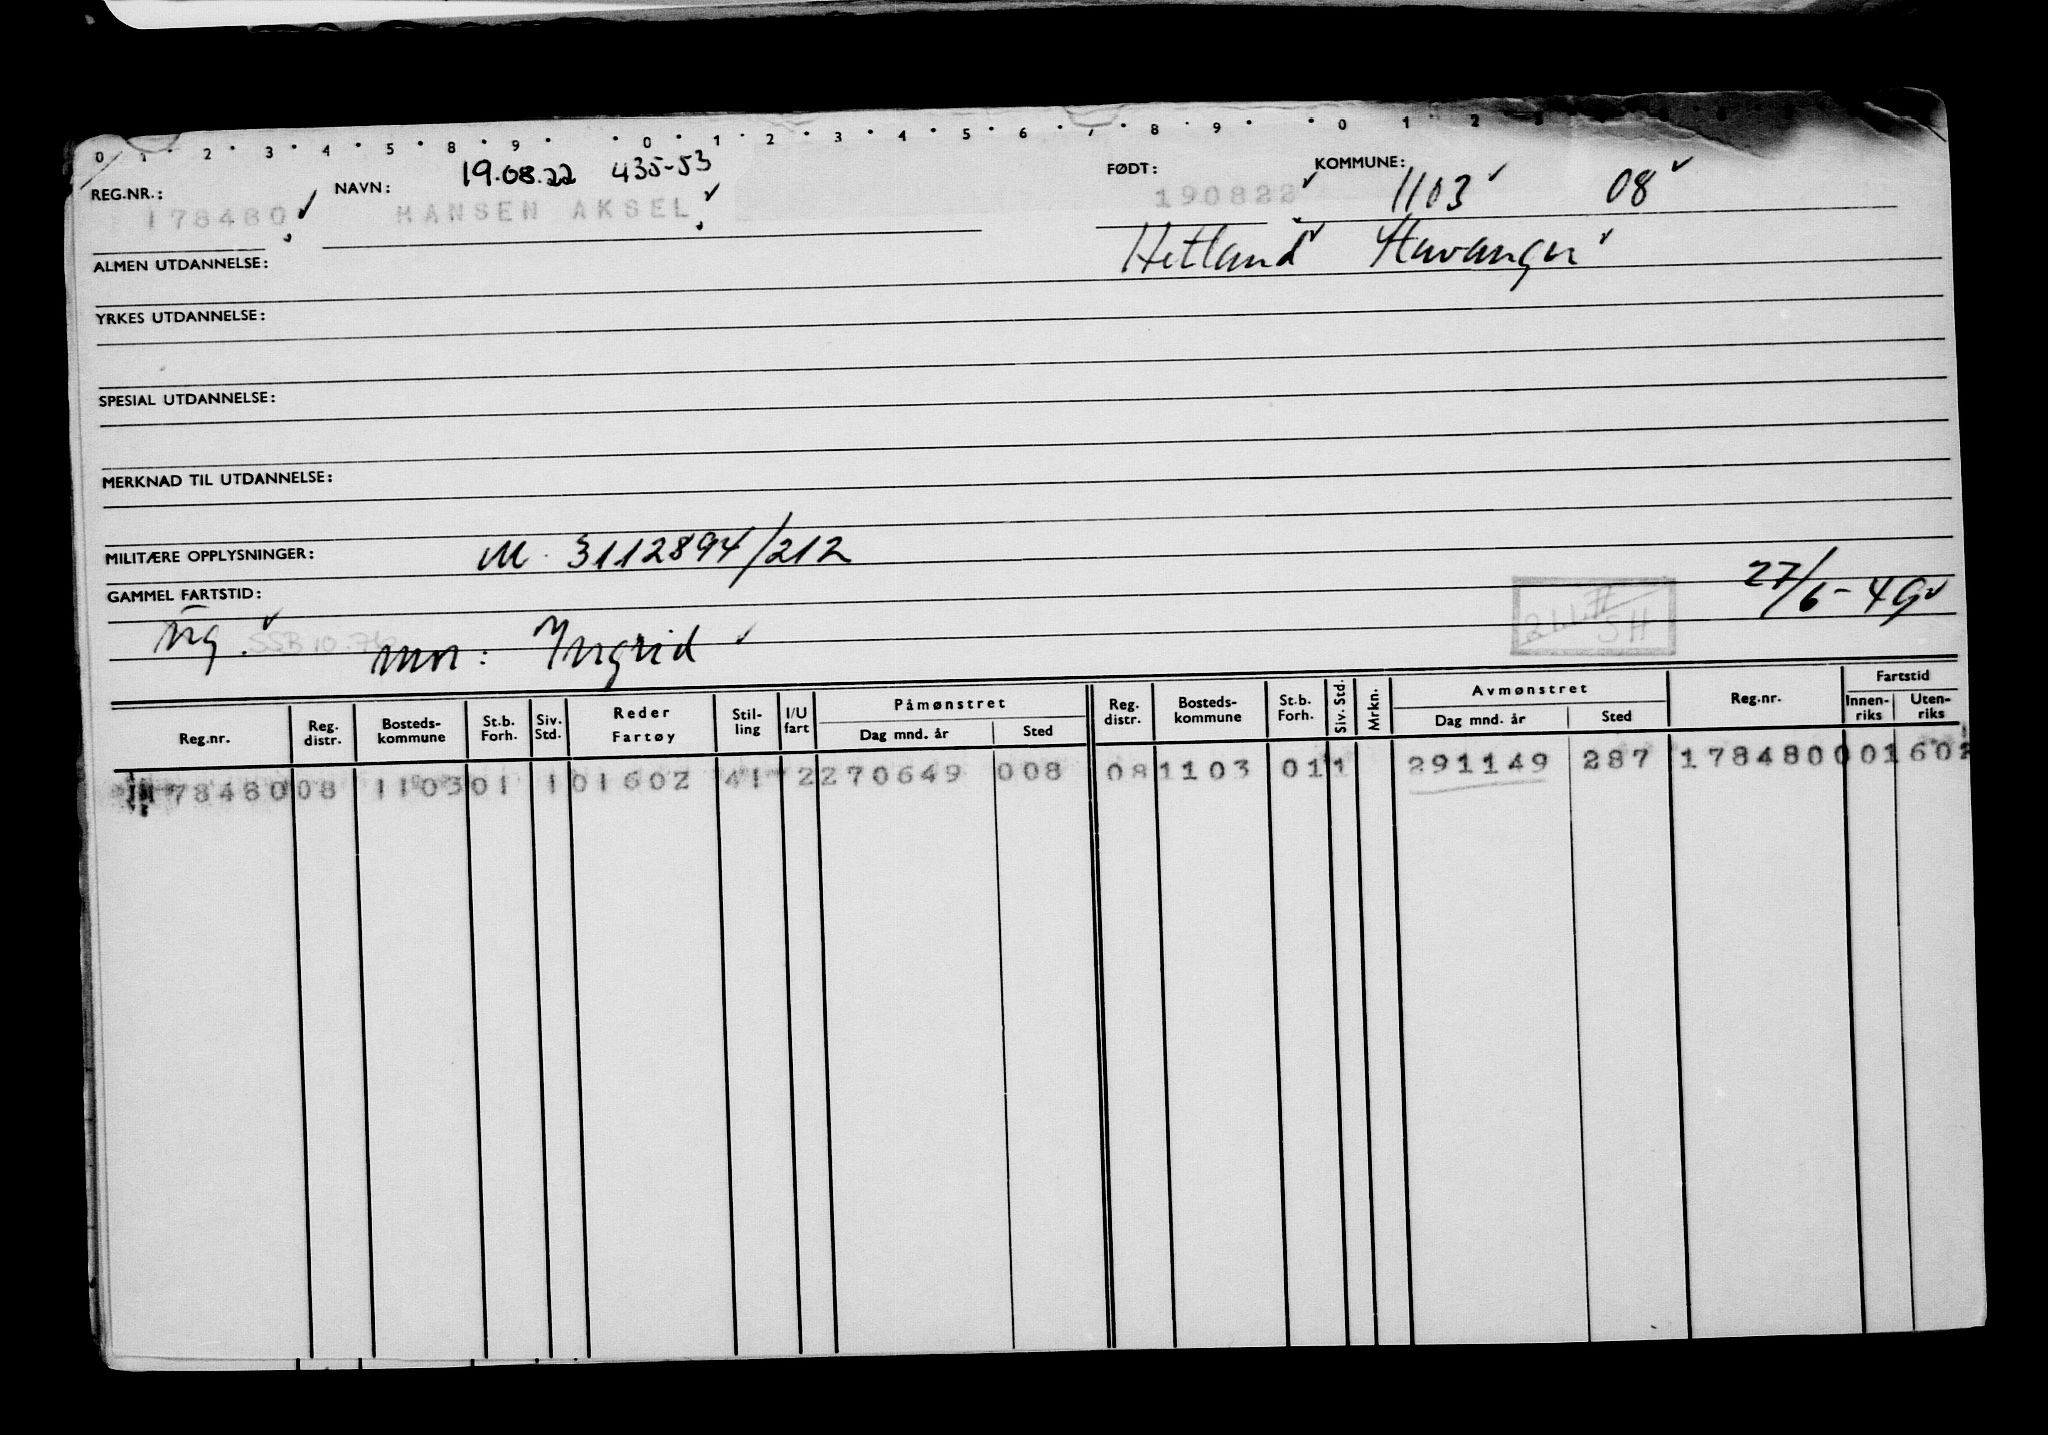 0 1 · 2 · 3 · 4 · 5 · 8 · 9 · · 0 · 1 · 2 · 3 · 4 · 5 · 6 · 7 · 8 · 9 · · 0 1 2
19.08.22 435-53
REG.NR.: NAVN: FØDT: KOMMUNE:
178480 HANSEN AKSEL 190822 1103 08
Hetland Stavanger
ALMEN UTDANNELSE:
YRKES UTDANNELSE:
SPESIAL UTDANNELSE:
MERKNAD TIL UTDANNELSE:
MILITÆRE OPPLYSNINGER: M. 3112894/212
GAMMEL FARTSTID: 27/6-49
ug. SSB 10.76 mor: Ingrid SH
Reg.nr. Reg. distr. Bosteds-kommune St.b. Forh. Siv. Std. Reder Fartøy Stil-ling I/U fart Påmønstret Dag mnd. år Sted Reg. distr. Bosteds-kommune St.b. Forh. Siv. Std. Mrkn. Avmønstret Dag mnd. år Sted Reg.nr. Fartstid Innen-riks Uten-riks
178480 08 1103 01 1 01602 41 2 270649 008 08 1103 01 1 291149 287 178480 001602